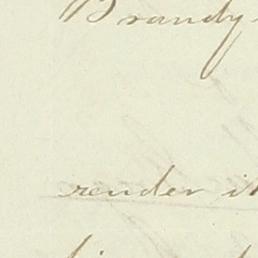 Brandy
render it